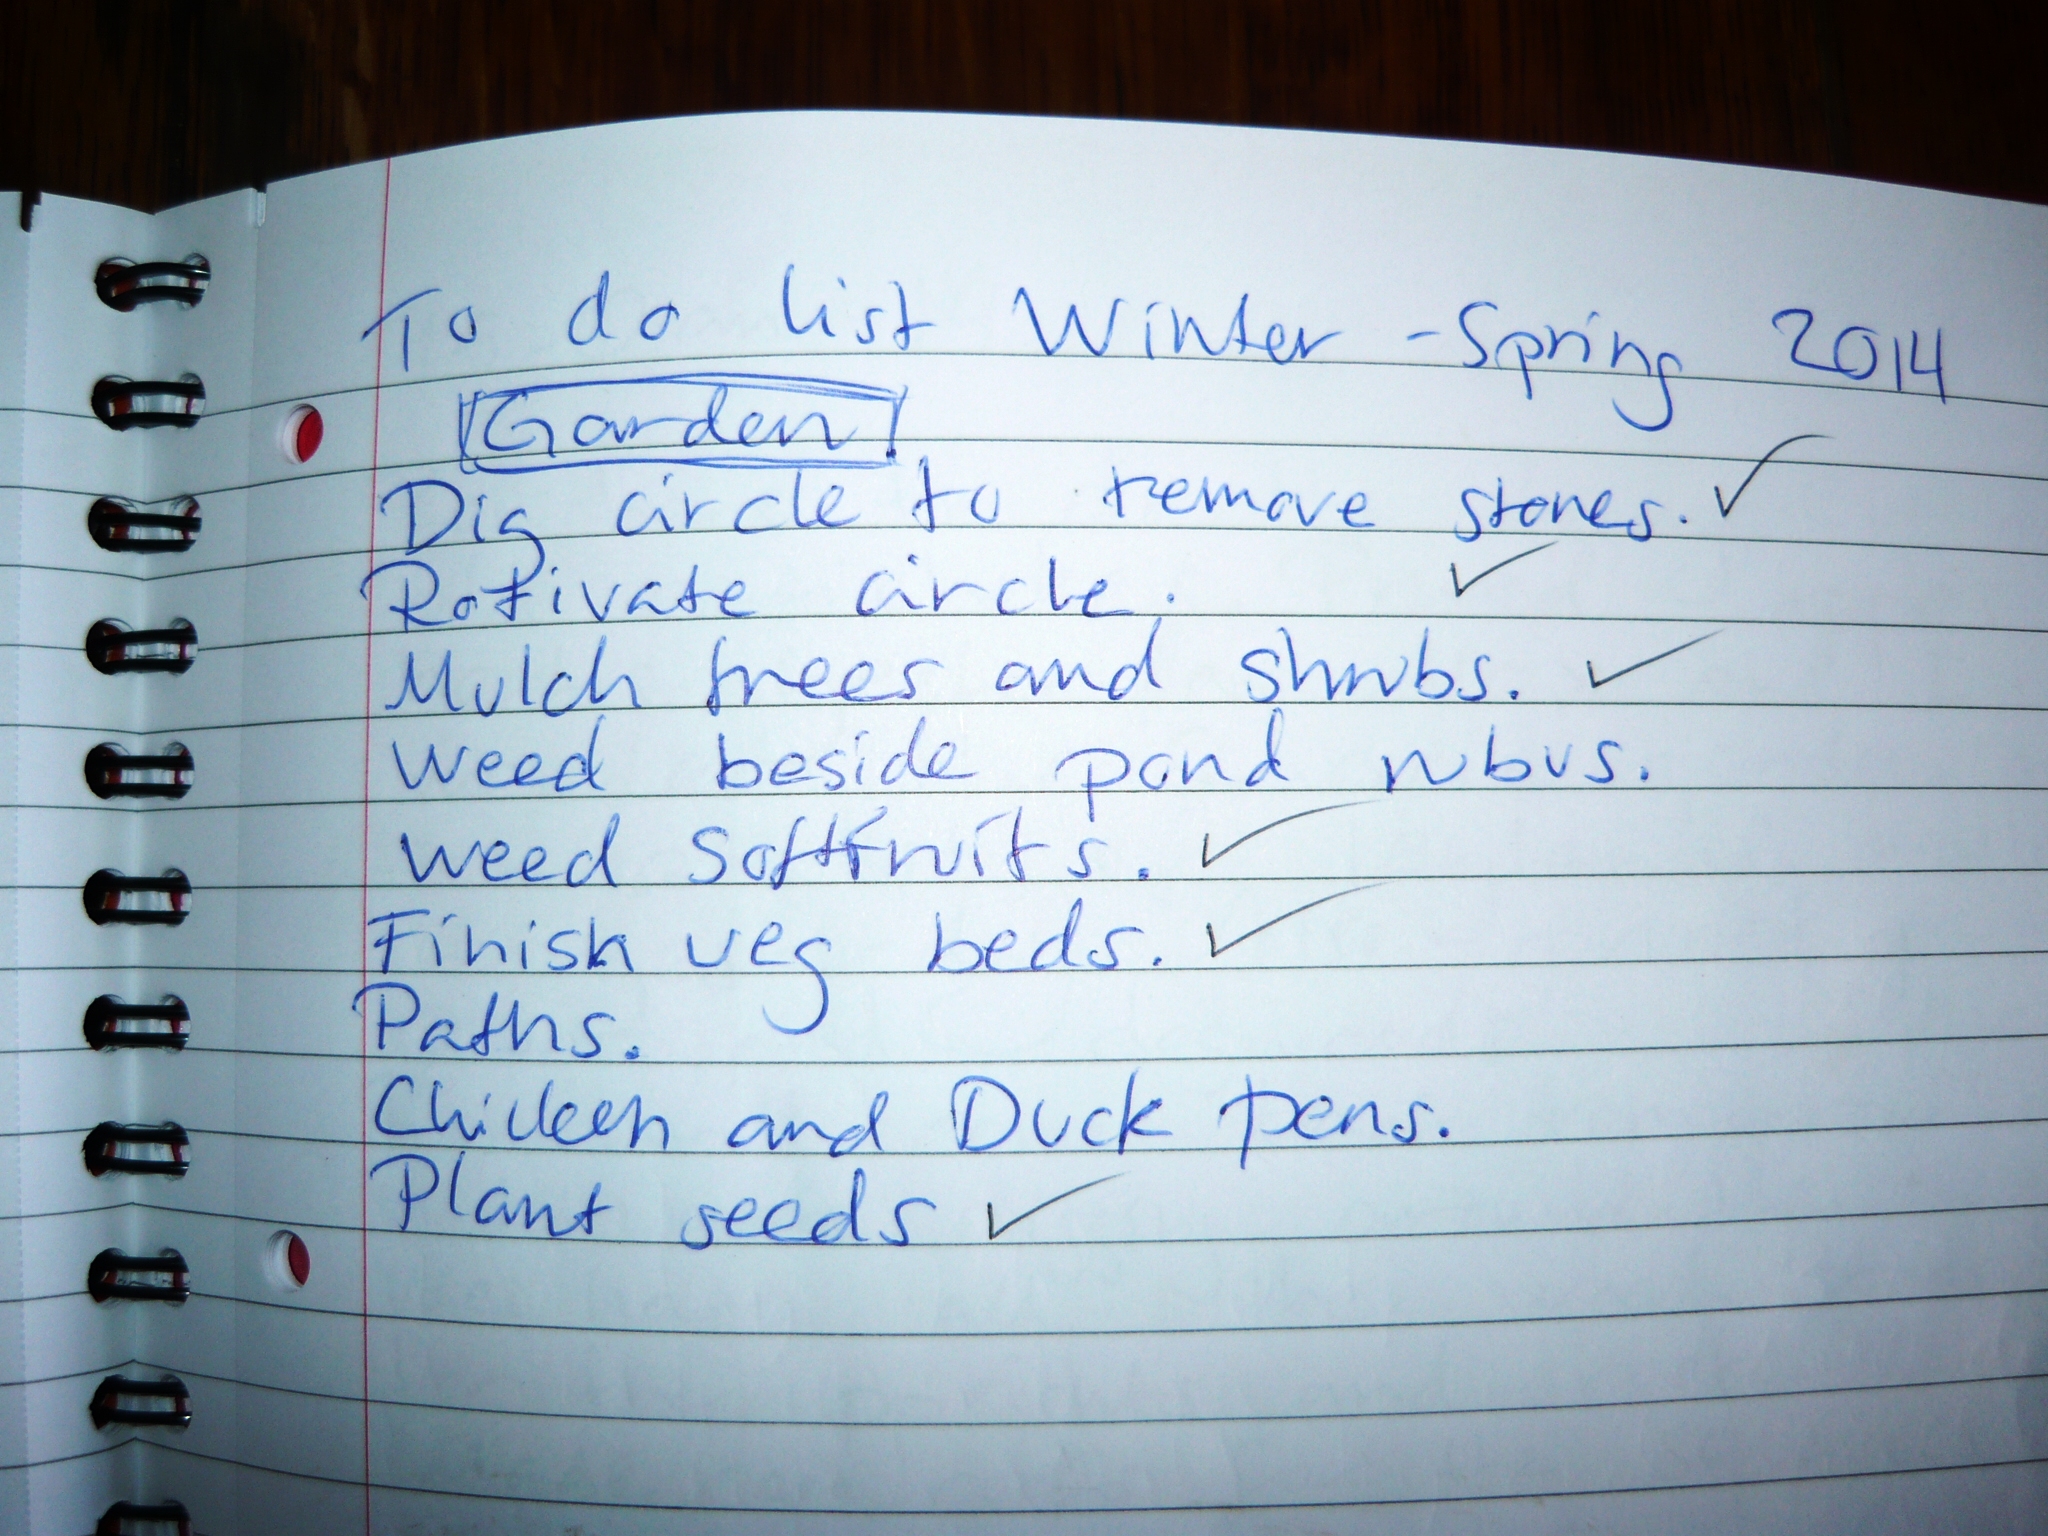 To do list Winter - Spring 2014
Garden
Dig circle to remove stones. ✓
Rotivate circle. ✓
Mulch trees and shrubs. ✓
Weed beside pond rubus.
Weed Softfruits. ✓
Finish veg beds. ✓
Paths.
Chicken and Duck pens.
Plant seeds ✓